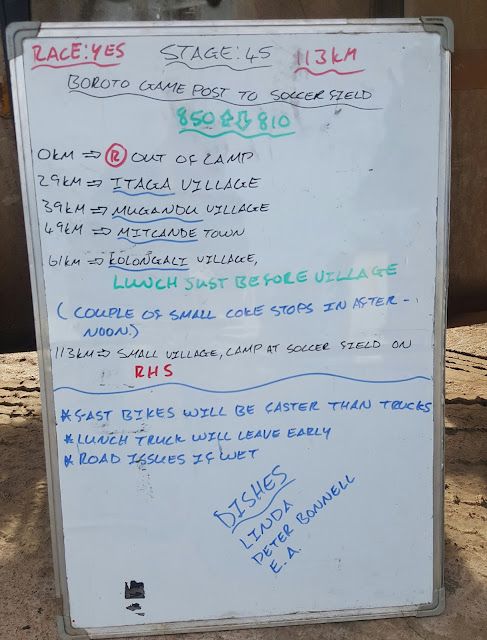 RACE: YES STAGE: 45 113KM
BOROTO GAME POST TO SOCCER FIELD
850 ⇧⇩ 810
0KM ⇒ Ⓡ OUT OF CAMP
29KM ⇒ ITAGA VILLAGE
39KM ⇒ MUGANDU VILLAGE
49KM ⇒ MITCANDE TOWN
61KM ⇒ KOLONGALI VILLAGE,
LUNCH JUST BEFORE VILLAGE
(COUPLE OF SMALL COKE STOPS IN AFTER-
NOON.)
113KM ⇒ SMALL VILLAGE, CAMP AT SOCCER FIELD ON
RHS
* FAST BIKES WILL BE FASTER THAN TRUCKS
* LUNCH TRUCK WILL LEAVE EARLY
* ROAD ISSUES IF WET
DISHES
LINDA
PETER BONNELL
E.A.